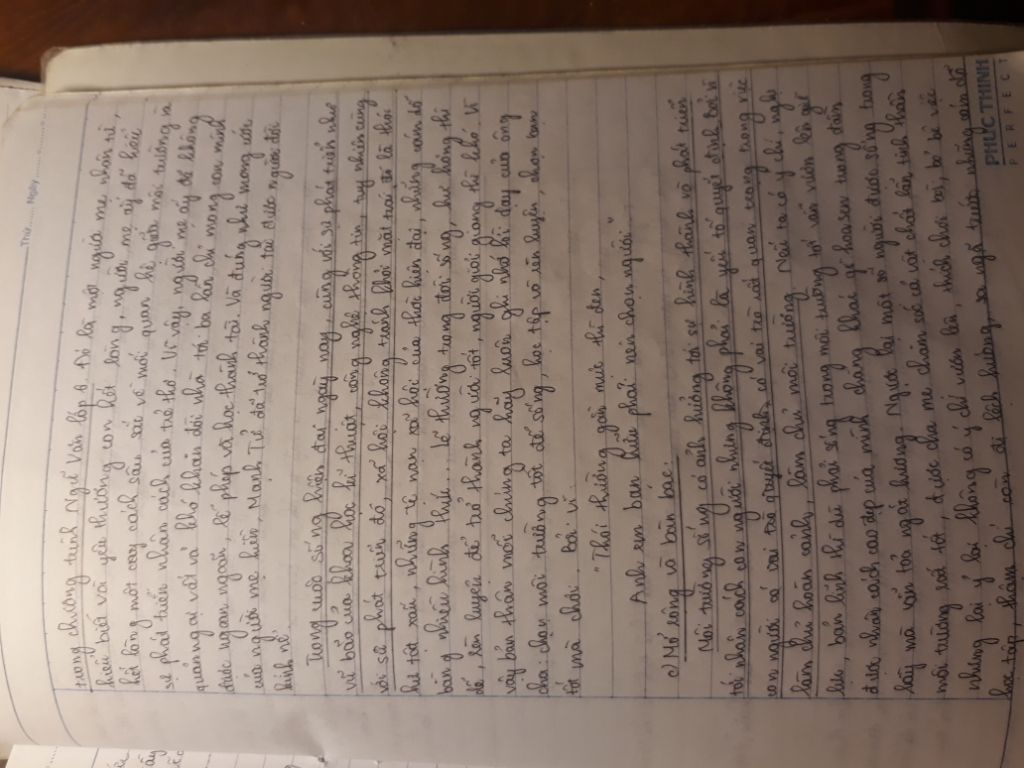 Thứ..... Ngày.....
trong chương trình Ngữ Văn lớp 6. Đó là một người mẹ nhân từ,
hiểu biết và yêu thương con hết lòng, người mẹ ấy đã hiểu
hết lòng một cách sâu sắc về mối quan hệ giữa môi trường và
sự phát triển nhân cách của trẻ thơ. Vì vậy, người mẹ ấy đã không
quản ngại vất vả khó khăn dời nhà tới ba lần chỉ mong con mình
được ngoan ngoãn, lễ phép và học thành tài. Và đúng như mong ước
của người mẹ hiền, Mạnh Tử đã trở thành người tài được người đời
kính nể.
Trong cuộc sống hiện đại ngày nay, cùng với sự phát triển như
vũ bão của khoa học, kĩ thuật, công nghệ thông tin, tuy nhiên cùng
với sự phát triển đó, xã hội không tránh khỏi mặt trái đó là thói
hư tật xấu, những tệ nạn xã hội của thời hiện đại, những xám dỗ
bằng nhiều hình thức... Lẽ thường trong đời sống, hư hỏng thì
dễ, rèn luyện để trở thành người tốt, người giỏi giang thì khó. Vì
vậy bản thân mỗi chúng ta hãy luôn ghi nhớ lời dạy của ông
cha: chọn môi trường tốt để sống, học tập và rèn luyện, chọn bạn
tốt mà chơi. Bởi vì:
"Thói thường gần mực thì đen,
Anh em bạn hữu phải nên chọn người"
c) Mở rộng và bàn bác:
Môi trường sống có ảnh hưởng tới sự hình thành và phát triển
tới nhân cách con người nhưng không phải là yếu tố quyết định bởi vì
con người có vai trò quyết định, có vai trò rất quan trọng trong việc
làm chủ hoàn cảnh, làm chủ môi trường. Nếu ta có ý chí, nghị
lực, bản lĩnh thì dù phải sống trong môi trường tối vẫn vươn lên giữ
được nhân cách cao đẹp của mình chẳng khác gì hoa sen trong đầm
lầy mà vẫn tỏa ngát hương. Ngược lại một số người được sống trong
môi trường rất tốt, được cha mẹ chăm sóc cả vật chất lẫn tinh thần
nhưng lại ỷ lại không có ý chí vươn lên, thích chơi bời, bỏ bê việc
học tập, thậm chí còn đi lệch hướng, sa ngã trước những xám dỗ
PHUCTHINH
PERFECT